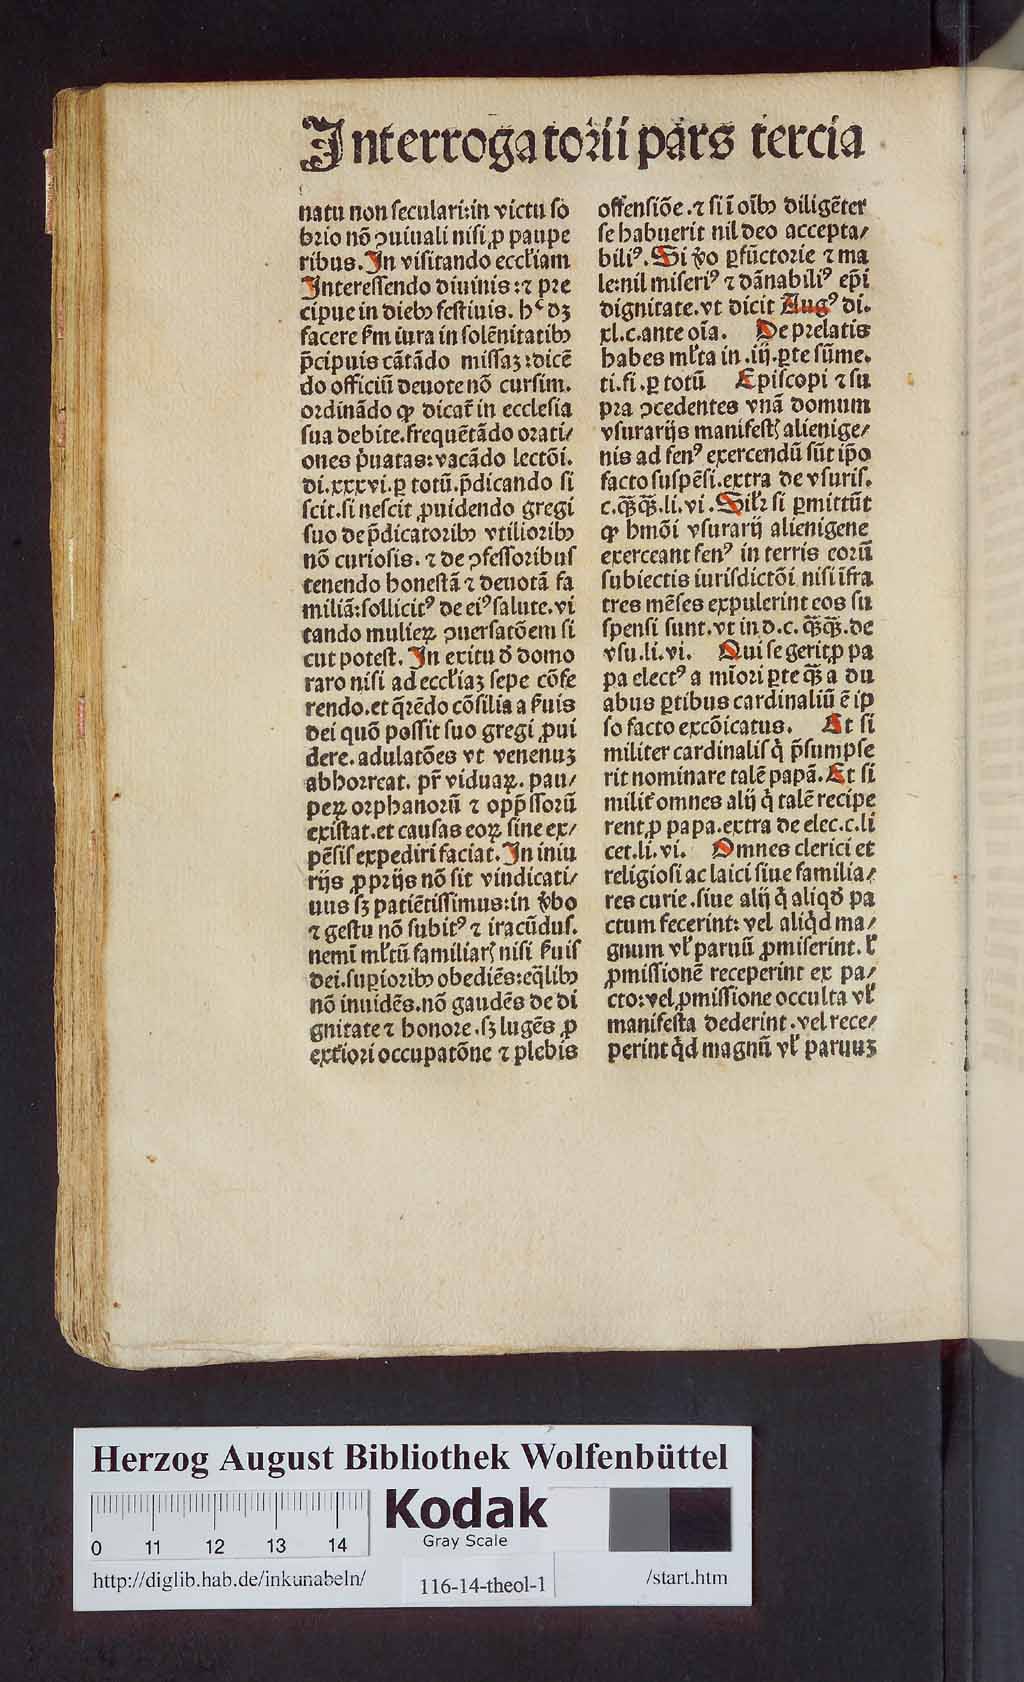 Interrogatorii pars tercia
natu non seculari:in victu so
brio nō ꝯuiuali nisi ꝓ paupe
ribus. In visitando eccl'iam
Interessendo diuinis:⁊ pre
cipue in diebꝫ festiuis. hᶜ dꝫ
facere ẜm iura in solēnitatibꝫ
p̄cipuis cātādo missaꝫ:dicē
do officiū deuote nō cursim.
ordinādo ꝙ dicat̄ in ecclesia
sua debite.frequētādo orati/
ones p̄uatas:vacādo lectōi.
di.xxxvi.ꝑ totū.p̄dicando si
scit.si nescit ꝓuidendo gregi
suo de p̄dicatoribꝫ vtilioribꝫ
nō curiosis.⁊ de ꝯfessoribus
tenendo honestā ⁊ deuotā fa
miliā:sollicitꝰ de eiꝰ salute.vi
tando mulieꝝ ꝯuersatōem si
cut potest. In exitu đ domo
raro nisi ad eccl'iaꝫ sepe cōfe
rendo.et q̄rēdo cōsilia a ẜuis
dei quō possit suo gregi ꝓui
dere.adulatōes vt venenuꝫ
abhorreat. pr̄ viduaꝝ.pau/
peꝝ orphanorū ⁊ opp̄ssorū
existat.et causas eoꝝ sine ex/
pēsis expediri faciat. In iniu
rijs ꝓprijs nō sit vindicati/
uus sꝫ patiētissimus:in v̄bo
⁊ gestu nō subitꝰ ⁊ iracūdus.
nemī ml'tū familiarꝭ nisi ẜuis
dei.suꝑioribꝫ obediēs:eq̄libꝫ
nō inuidēs.nō gaudēs de di
gnitate ⁊ honore.sꝫ lugēs ꝓ
ext̄iori occupatōne ⁊ plebis
offensiōe.⁊ si ī oībꝫ diligēter
se habuerit nil deo accepta/
biliꝰ. Si v̄o ꝑfūctorie ⁊ ma
le:nil miseriꝰ ⁊ dānabiliꝰ ep̄i
dignitate.vt dicit Augꝰ di.
xl.c.ante oīa. De prelatis
habes ml'ta in .iij.ꝑte sūme.
ti.fi.ꝑ totū Episcopi ⁊ su
pra ꝯcedentes vnā domum
vsurarijs manifestꝭ alienige/
nis ad fenꝰ exercendū sūt ip̄o
facto suspēsi.extra de vsuris.
c.q̄ꝫ q̄ꝫ.li.vi. Sil'r si ꝑmittūt
ꝙ hmōi vsurarij alienigene
exerceant fenꝰ in terris eorū
subiectis iurisdictōi nisi īfra
tres mēses expulerint eos su
spensi sunt.vt in d.c.q̄ꝫ q̄ꝫ.de
vsu.li.vi. Qui se gerit ꝓ pa
pa electꝰ a mīori ꝑte q̄ꝫ a du
abus ꝑtibus cardinaliū ē ip
so facto excōicatus. Et si
militer cardinalis q̇ p̄sumpse
rit nominare talē papā. Et si
milit̄ omnes alij q̇ talē recipe
rent ꝓ papa.extra de elec.c.li
cet.li.vi. Omnes clerici et
religiosi ac laici siue familia/
res curie.siue alij q̇ aliqđ pa
ctum fecerint: vel aliq̇d ma/
gnum vl' paruū ꝓmiserint.l'
ꝓmissionē receperint ex pa/
cto:vel ꝓmissione occulta vl'
manifesta dederint.vel rece/
perint q̇d magnū vl' paruuꝫ
Herzog August Bibliothek Wolfenbüttel
Kodak
Gray Scale
0 11 12 13 14
http://diglib.hab.de/inkunabeln/
116-14-theol-1
/start.htm